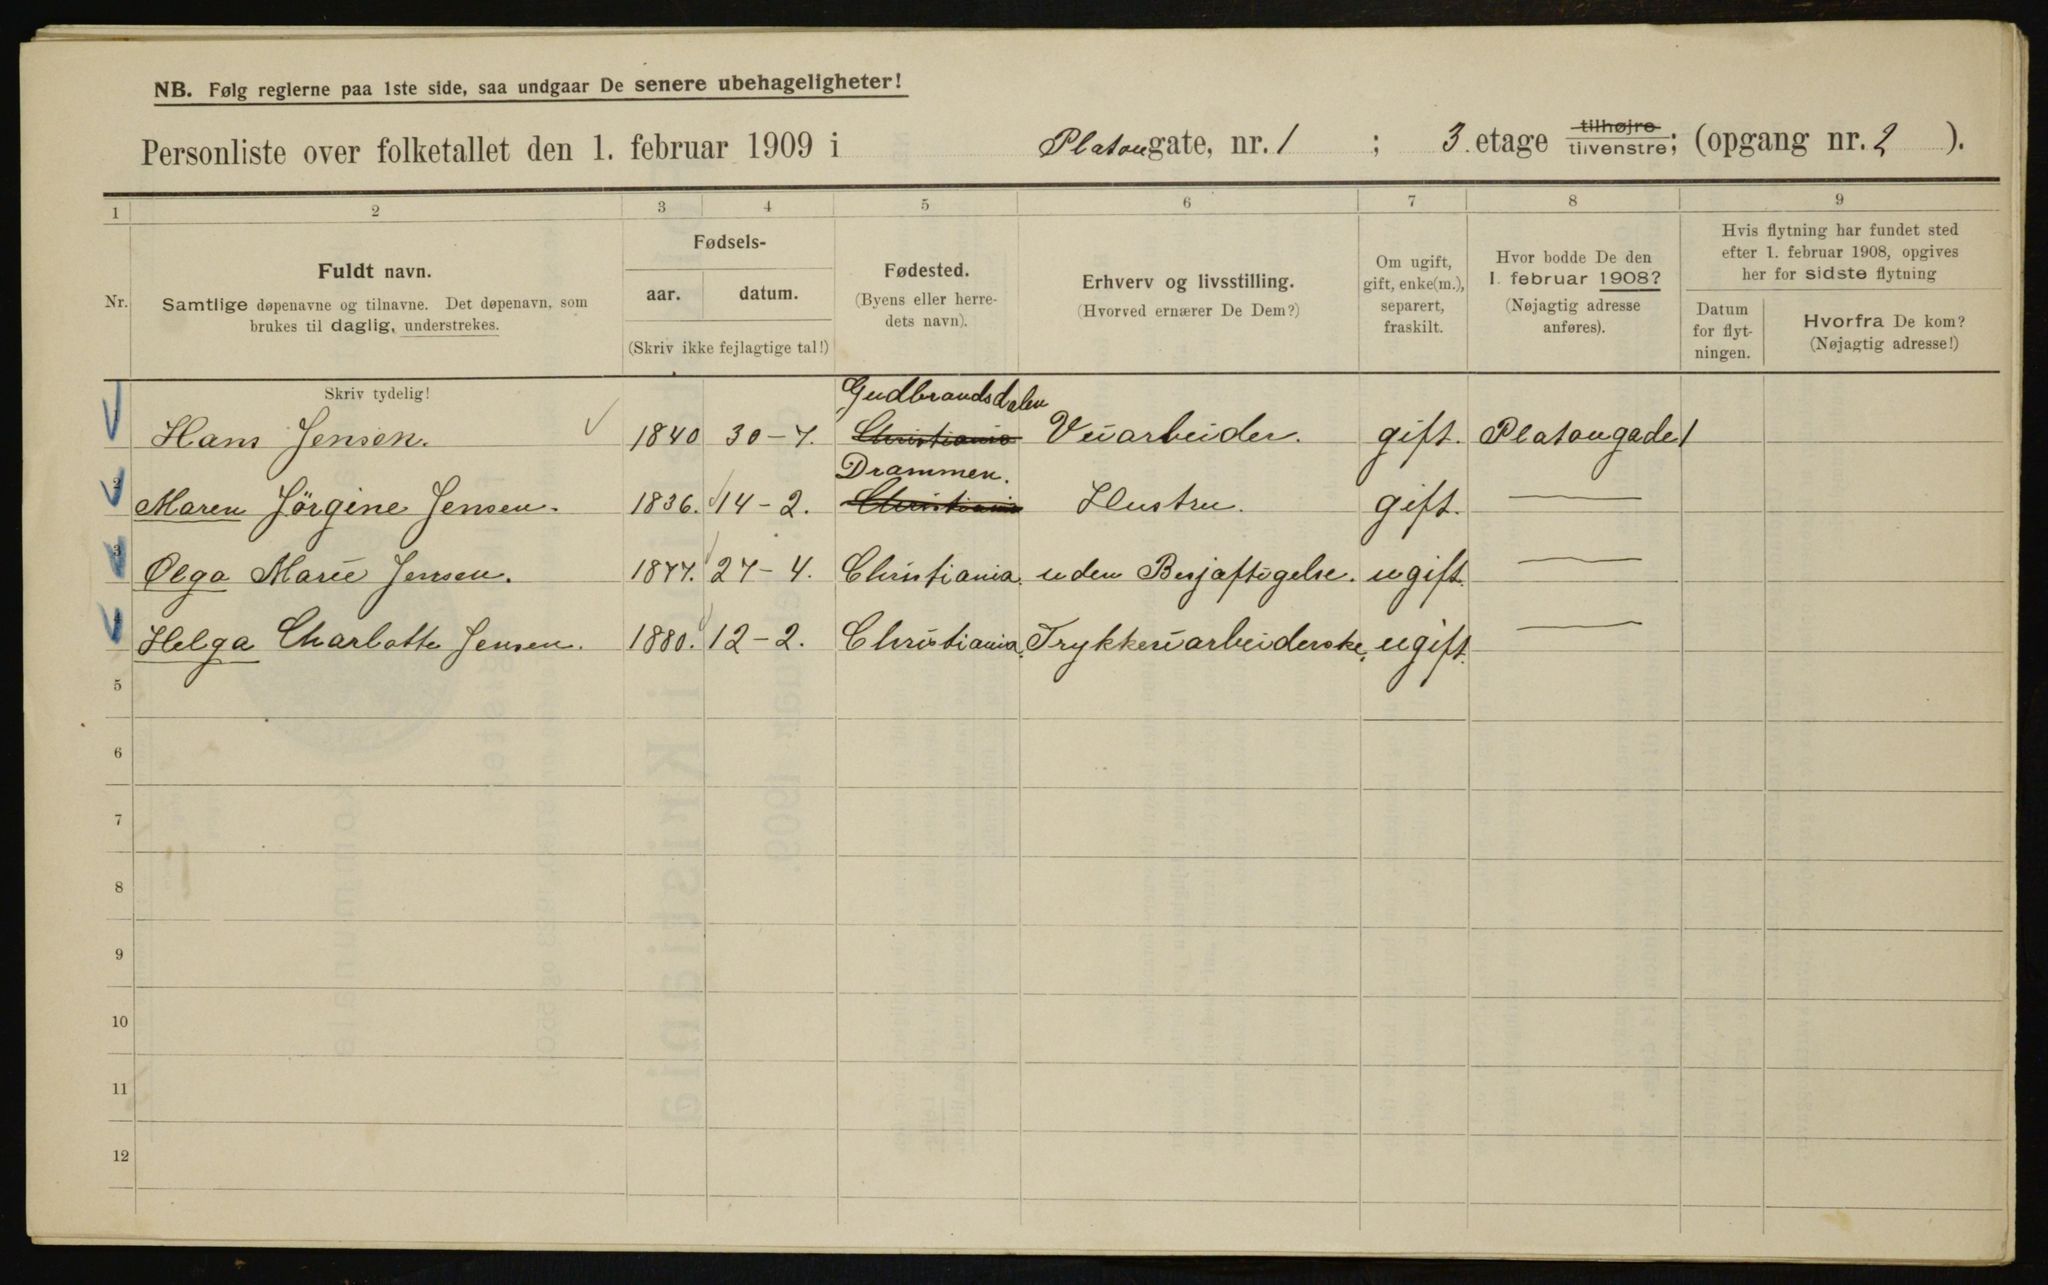 NB. Følg reglerne paa 1ste side, saa undgaar De senere ubehageligheter!
Personliste over folketallet den 1. februar 1909 i Platougate, nr. 1 ; 3. etage tilhøjre tilvenstre; (opgang nr. 2 ).
1 2 3 4 5 6 7 8 9
Nr.
Fuldt navn.
Samtlige døpenavne og tilnavne. Det døpenavn, som
brukes til daglig, understrekes.
Fødsels-
aar. datum.
(Skriv ikke fejlagtige tal!)
Fødested.
(Byens eller herre-
dets navn).
Erhverv og livsstilling.
(Hvorved ernærer De Dem?)
Om ugift,
gift, enke(m.),
separert,
fraskilt.
Hvor bodde De den
1. februar 1908?
(Nøjagtig adresse
anføres).
Hvis flytning har fundet sted
efter 1. februar 1908, opgives
her for sidste flytning
Datum
for flyt-
ningen.
Hvorfra De kom?
(Nøjagtig adresse!)
Skriv tydelig!
Gudbrandsdalen
1 Hans Jensen. 1840 30-7. Christiania Veiarbeider. gift. Platougade 1
Drammen.
2 Maren Jörgine Jensen. 1836. 14-2. Christiania Hustru. gift. —
3 Olga Marie Jensen. 1877. 27-4. Christiania. uden Besjæftigelse. ugift. —
4 Helga Charlotte Jensen. 1880. 12-2. Christiania. Trykkeriarbeiderske, ugift. —
5
6
7
8
9
10
11
12